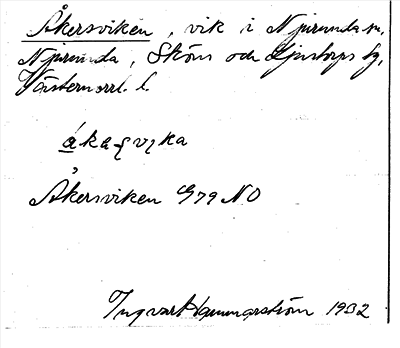 Åkersviken, vik i Njurunda sn,
Njurunda, Sköns och Ljustorps tg,
Västernorrl. l.
Åkersviken G79 NO
Ingvar Hammarström 1932